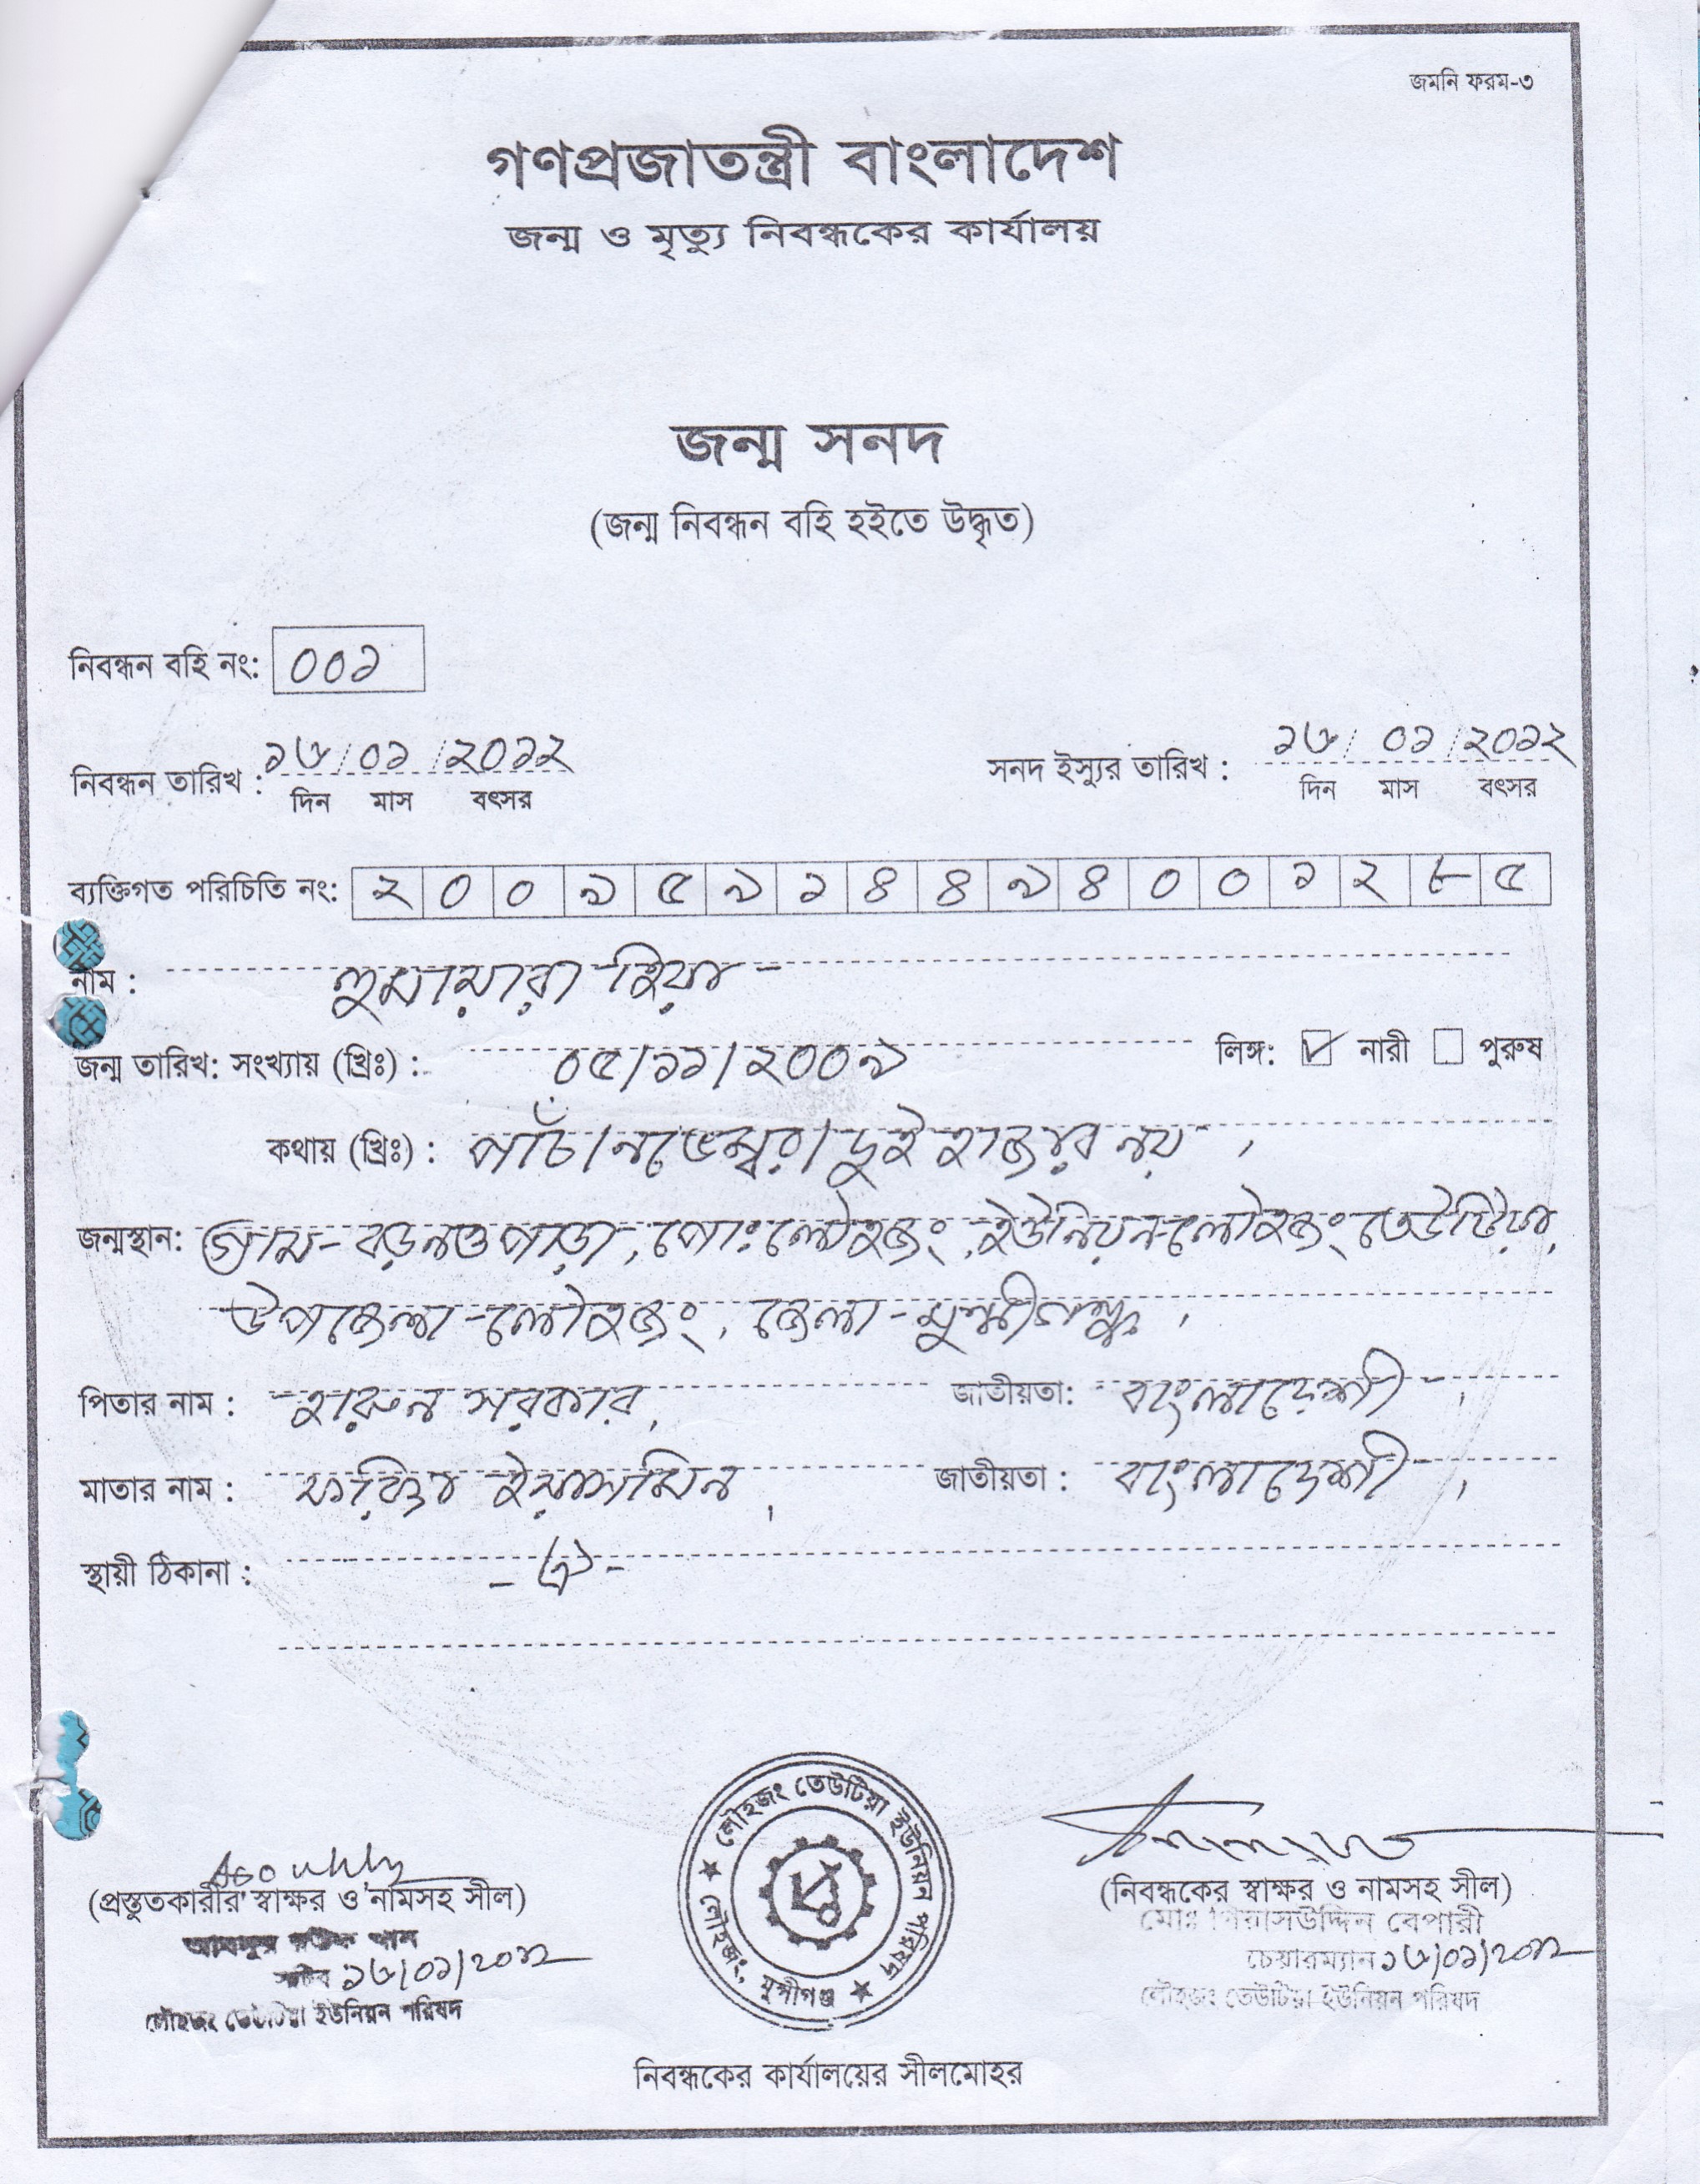 জমনি ফরম-৩
গণপ্রজাতন্ত্রী বাংলাদেশ
জন্ম ও মৃত্যু নিবন্ধকের কার্যালয়
জন্ম সনদ
(জন্ম নিবন্ধন বহি হইতে উদ্ধৃত)
নিবন্ধন বহি নং: ০০১
নিবন্ধন তারিখ : ১৬/০১/২০১২ সনদ ইস্যুর তারিখ : ১৬/০১/২০১২
দিন মাস বৎসর দিন মাস বৎসর
ব্যক্তিগত পরিচিতি নং: ২ ০ ০ ৯ ৫ ৯ ১ ৪ ৪ ৯ ৪ ০ ০ ১ ২ ৮ ৫
নাম : হুমায়রা হিয়া
জন্ম তারিখ: সংখ্যায় (খ্রিঃ) : ০৫/১১/২০০৯ লিঙ্গ: ✓ নারী পুরুষ
কথায় (খ্রিঃ) : পাঁচ/নভেম্বর/দুই হাজার নয়
জন্মস্থান: গ্রাম- বড়নওপাড়া, পোঃ লৌহজং, ইউনিয়ন-লৌহজং তেউটিয়া,
উপজেলা-লৌহজং, জেলা-মুন্সীগঞ্জ
পিতার নাম : হারুন সরকার, জাতীয়তা: বাংলাদেশী
মাতার নাম : ইয়াসমিন জাতীয়তা : বাংলাদেশী
স্থায়ী ঠিকানা : - ঐ -
(প্রস্তুতকারীর স্বাক্ষর ও নামসহ সীল) (নিবন্ধকের স্বাক্ষর ও নামসহ সীল)
মোঃ গিয়াসউদ্দিন বেপারী
সচিব ১৬/০১/২০১২ চেয়ারম্যান ১৬/০১/২০১২
লৌহজং তেউটিয়া ইউনিয়ন পরিষদ লৌহজং তেউটিয়া ইউনিয়ন পরিষদ
★ লৌহজং তেউটিয়া ইউনিয়ন পরিষদ ★ লৌহজং, মুন্সীগঞ্জ
নিবন্ধকের কার্যালয়ের সীলমোহর